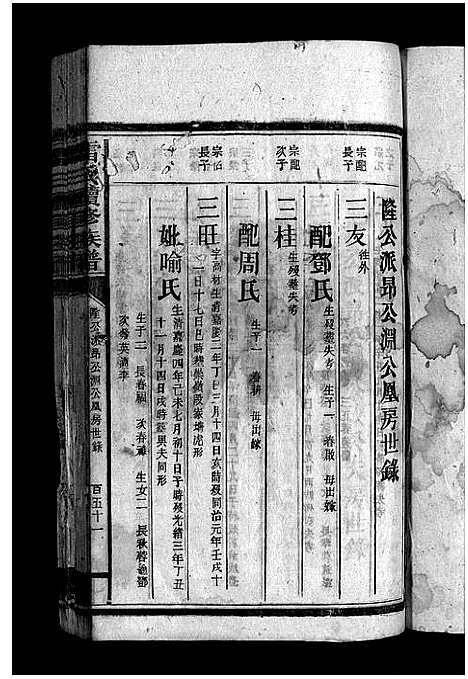 隆公派昂公淵公凰房世錄
宗配長子
三友 徃外
配鄧氏 生歿葬失考 生子一 春散 毋出嫁
宗配次子
三桂 生歿葬失考
配周氏 生子一 春耕 毋出嫁
宗伯長子
三旺 字高材生清嘉慶二年丁巳三月十四日亥時歿同治元年壬戌十
一日十七日巳時葬 段家塘虎形
妣喻氏 生清嘉慶四年己未七月初十日子時歿光緒三年丁丑
十一月十四日戌時葬與夫同形
生子二 長春 次春 生女二 長秋蓉適鄧
次秀英適李
續修族譜
隆公派昂公淵公凰房世錄
百五十一